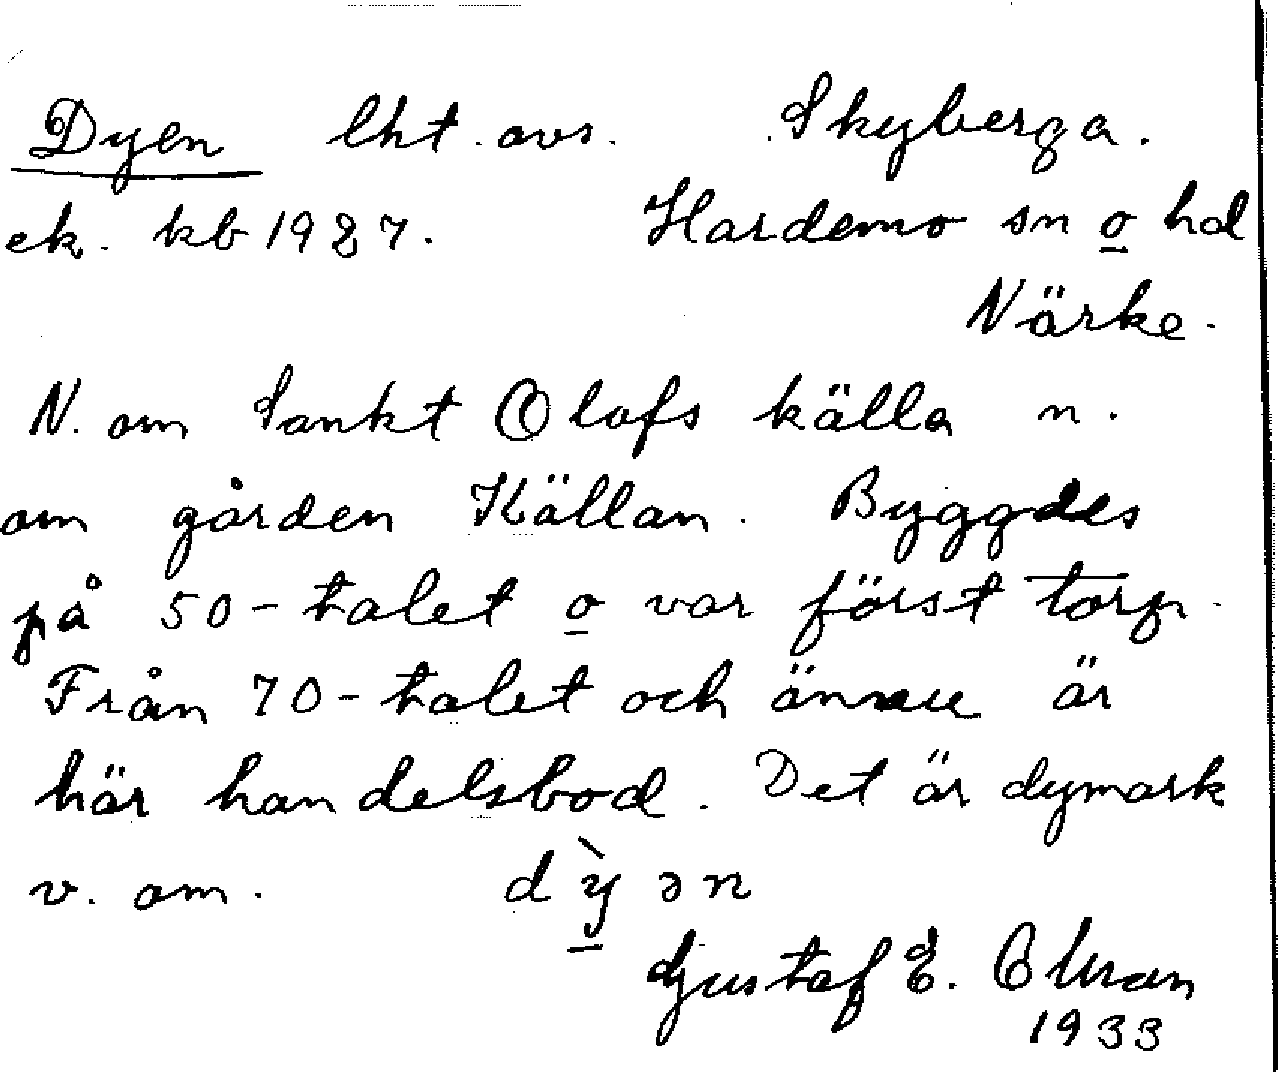 Dyen lht. avs. Skyberga.
ek. kb 1927. Hardemo sn o hd
Närke.
N. om Sankt Olofs källa n.
om gården Källan. Byggdes
på 50-talet o var först torp.
Från 70-talet och ännu är
här handelsbod. Det är dymark
v. om. dỳən
Gustaf E.
1933